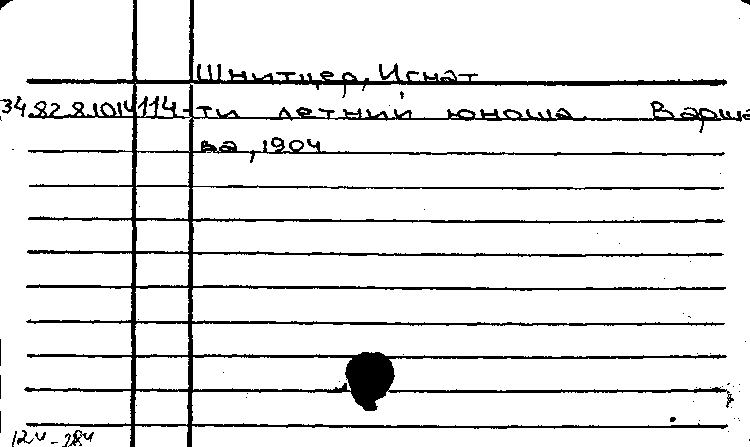 Шнитцер, Игнат
34.82.8.1014 114-ти летний юноша. Варша
ва, 1904
124-284